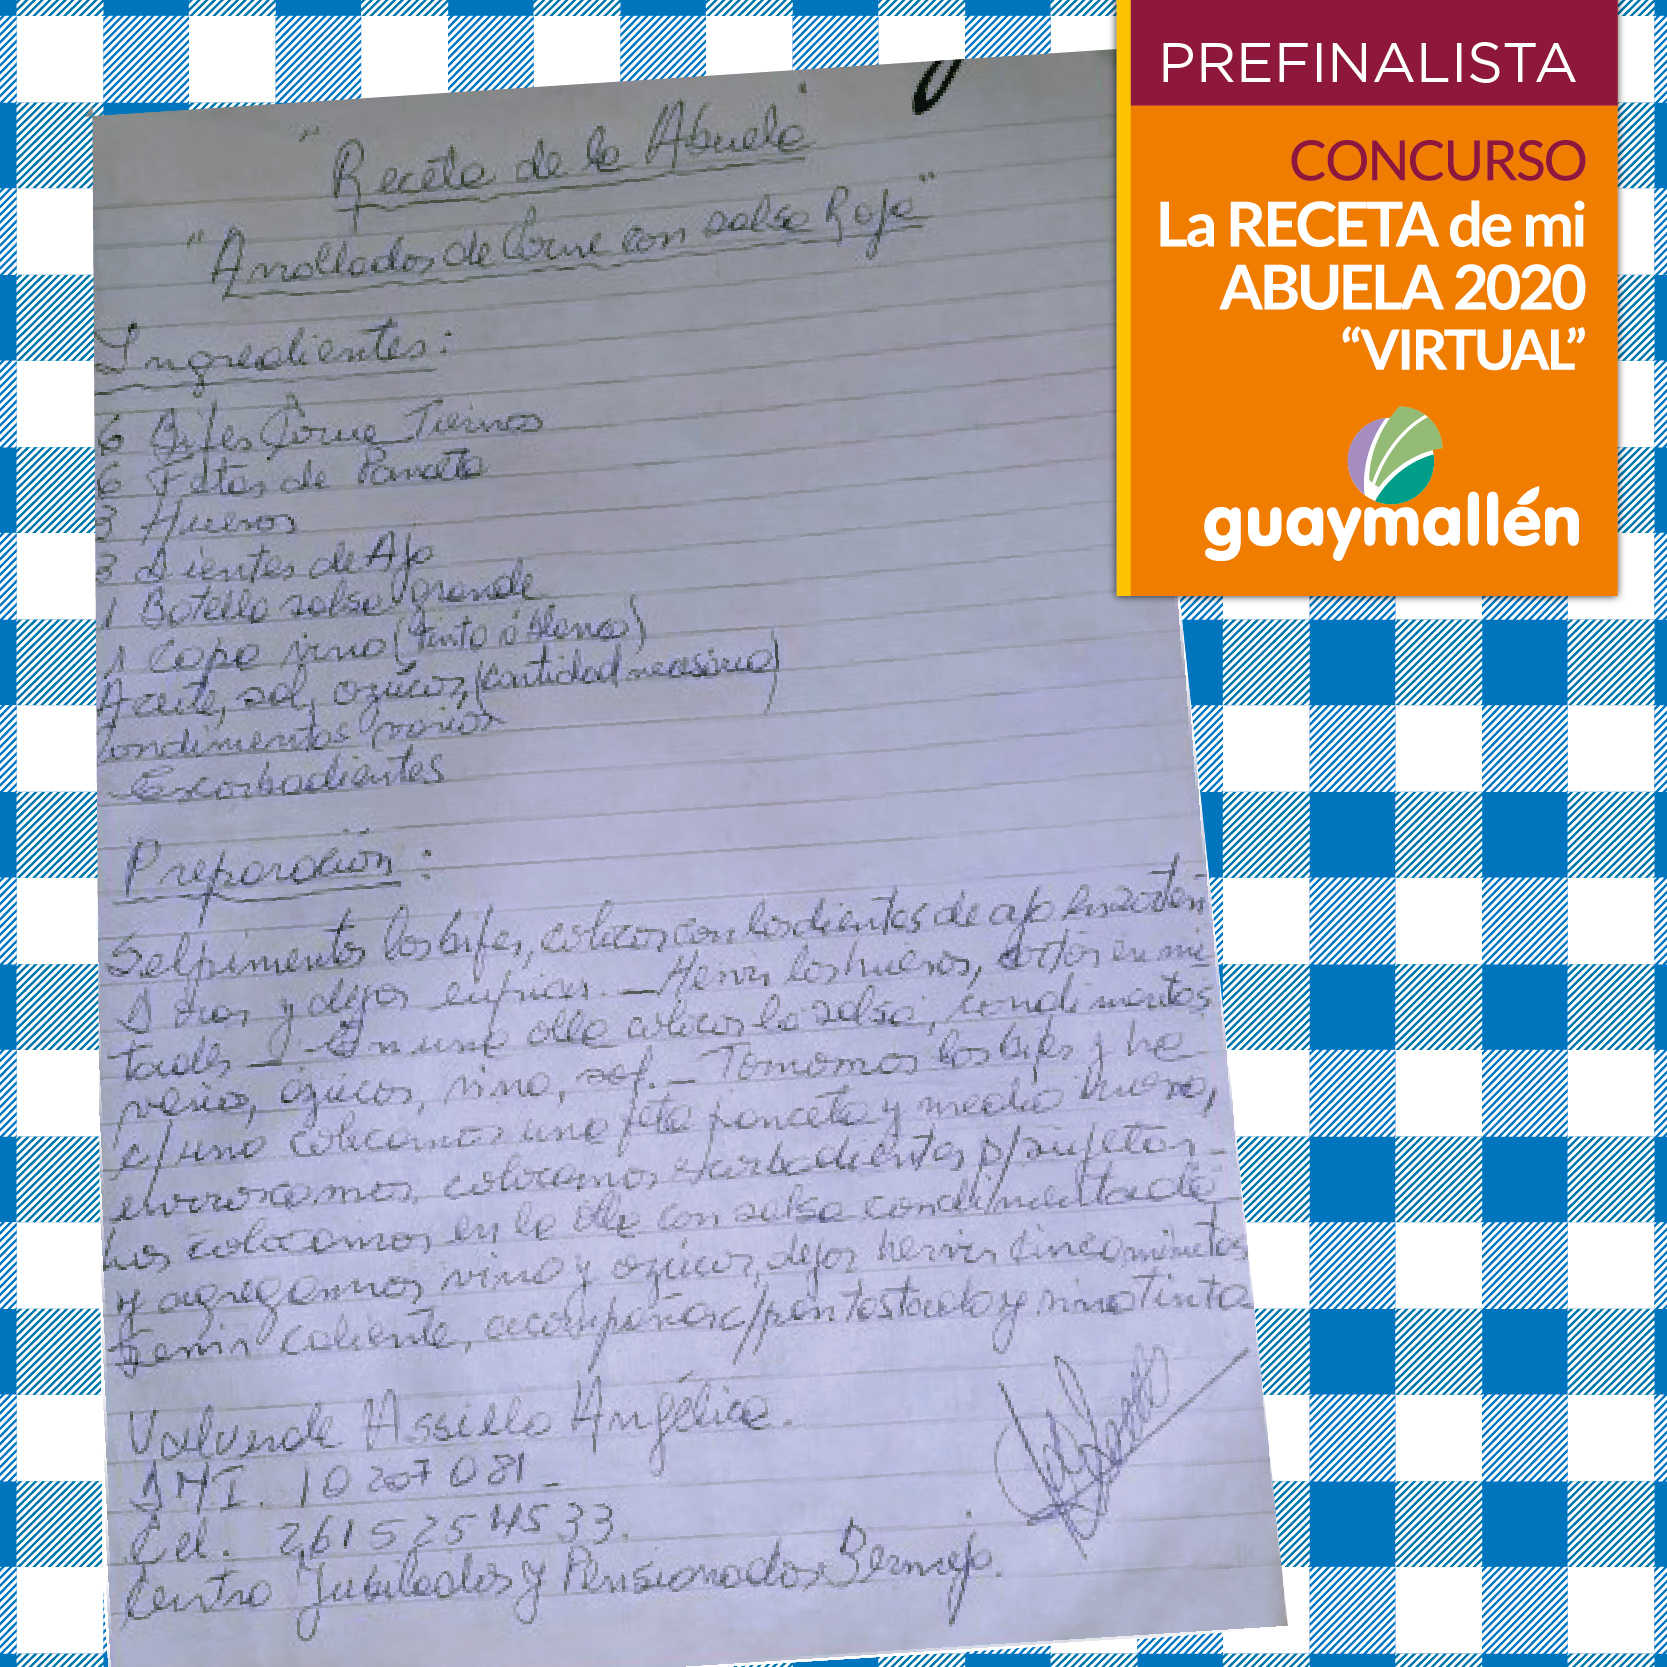 "Receta de la Abuela"
"Arrollados de Carne con salsa Roja"
Ingredientes:
6 Bifes Carne Tiernos
6 Fetas de Panceta
3 Huevos
3 Dientes de Ajo
1 Botella salsa grande
1 Copa vino (tinto ó blanco)
Aceite, sal, azúcar, (cantidad necesaria)
Condimentos varios
Escarbadientes
Preparación:
Salpimentar los bifes, colocar con los dientes de ajo en sartén
y dejar enfriar. _ Hervir los huevos, cortar en mi
tades _ En una olla colocar la salsa, condimentos
varios, azúcar, vino, sal. _ Tomamos los bifes y ha
c/uno colocamos una feta panceta y medio huevo,
enroscamos, colocamos escarbadientes p/sujetar _
Los colocamos en la olla con salsa condimentada
y agregamos vino y azúcar, dejar hervir cinco minutos
Servir caliente, acompañar c/pan tostado y vino Tinto
Valverde Assilla Angélica.
DNI. 10 207 081 _
Cel. 2615254533.
Centro Jubilados y Pensionados Bermejo.
PREFINALISTA
CONCURSO
La RECETA de mi
ABUELA 2020
“VIRTUAL”
guaymallén